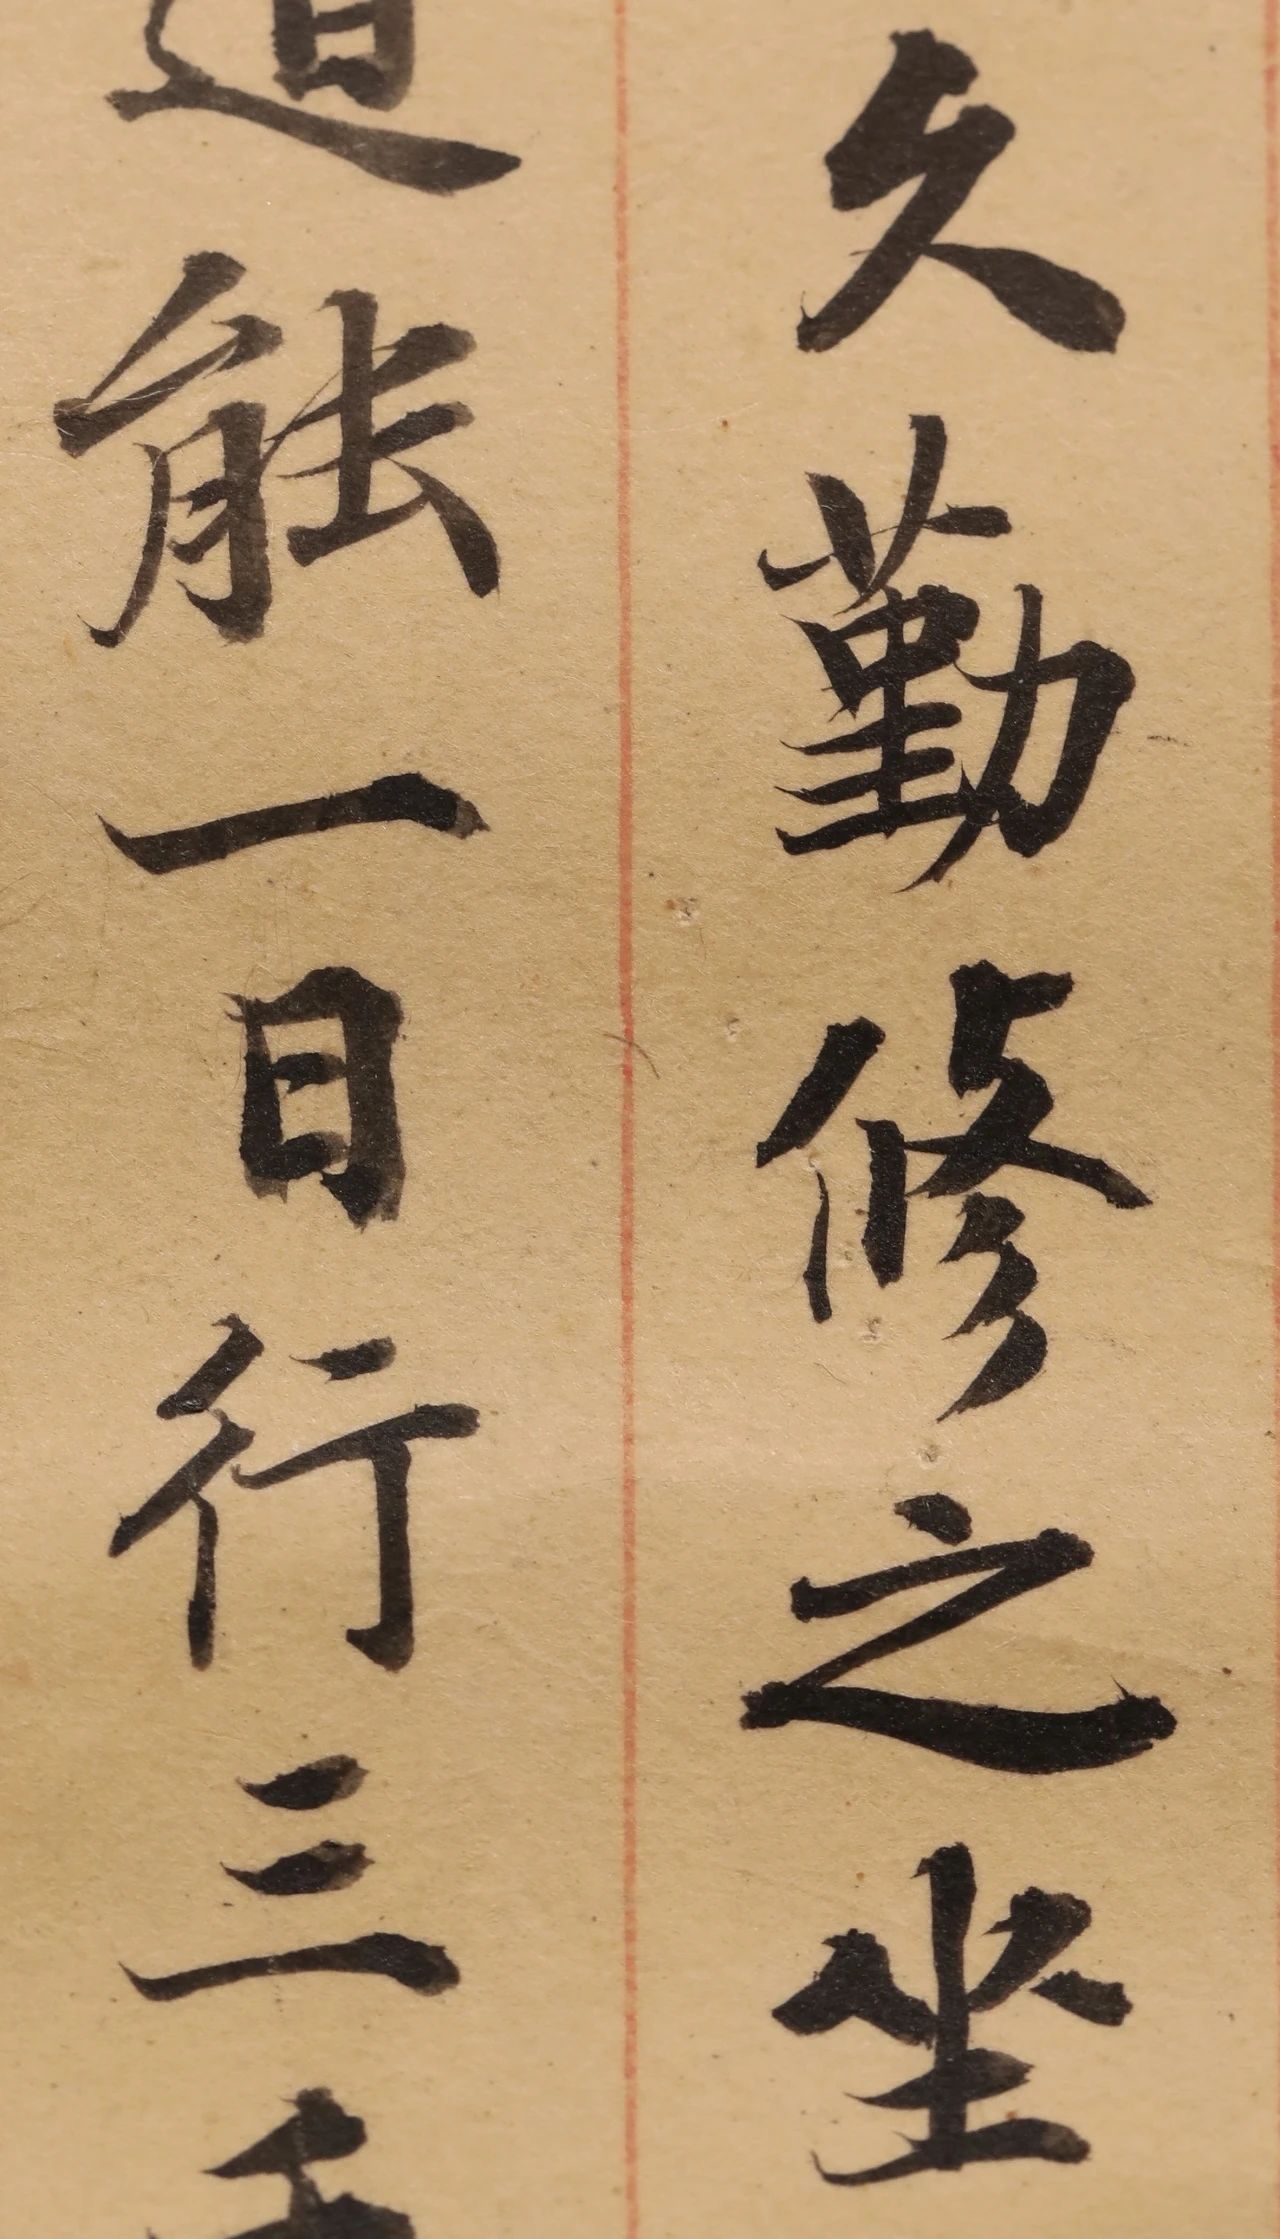 久勤修之坐
道能一日行三千